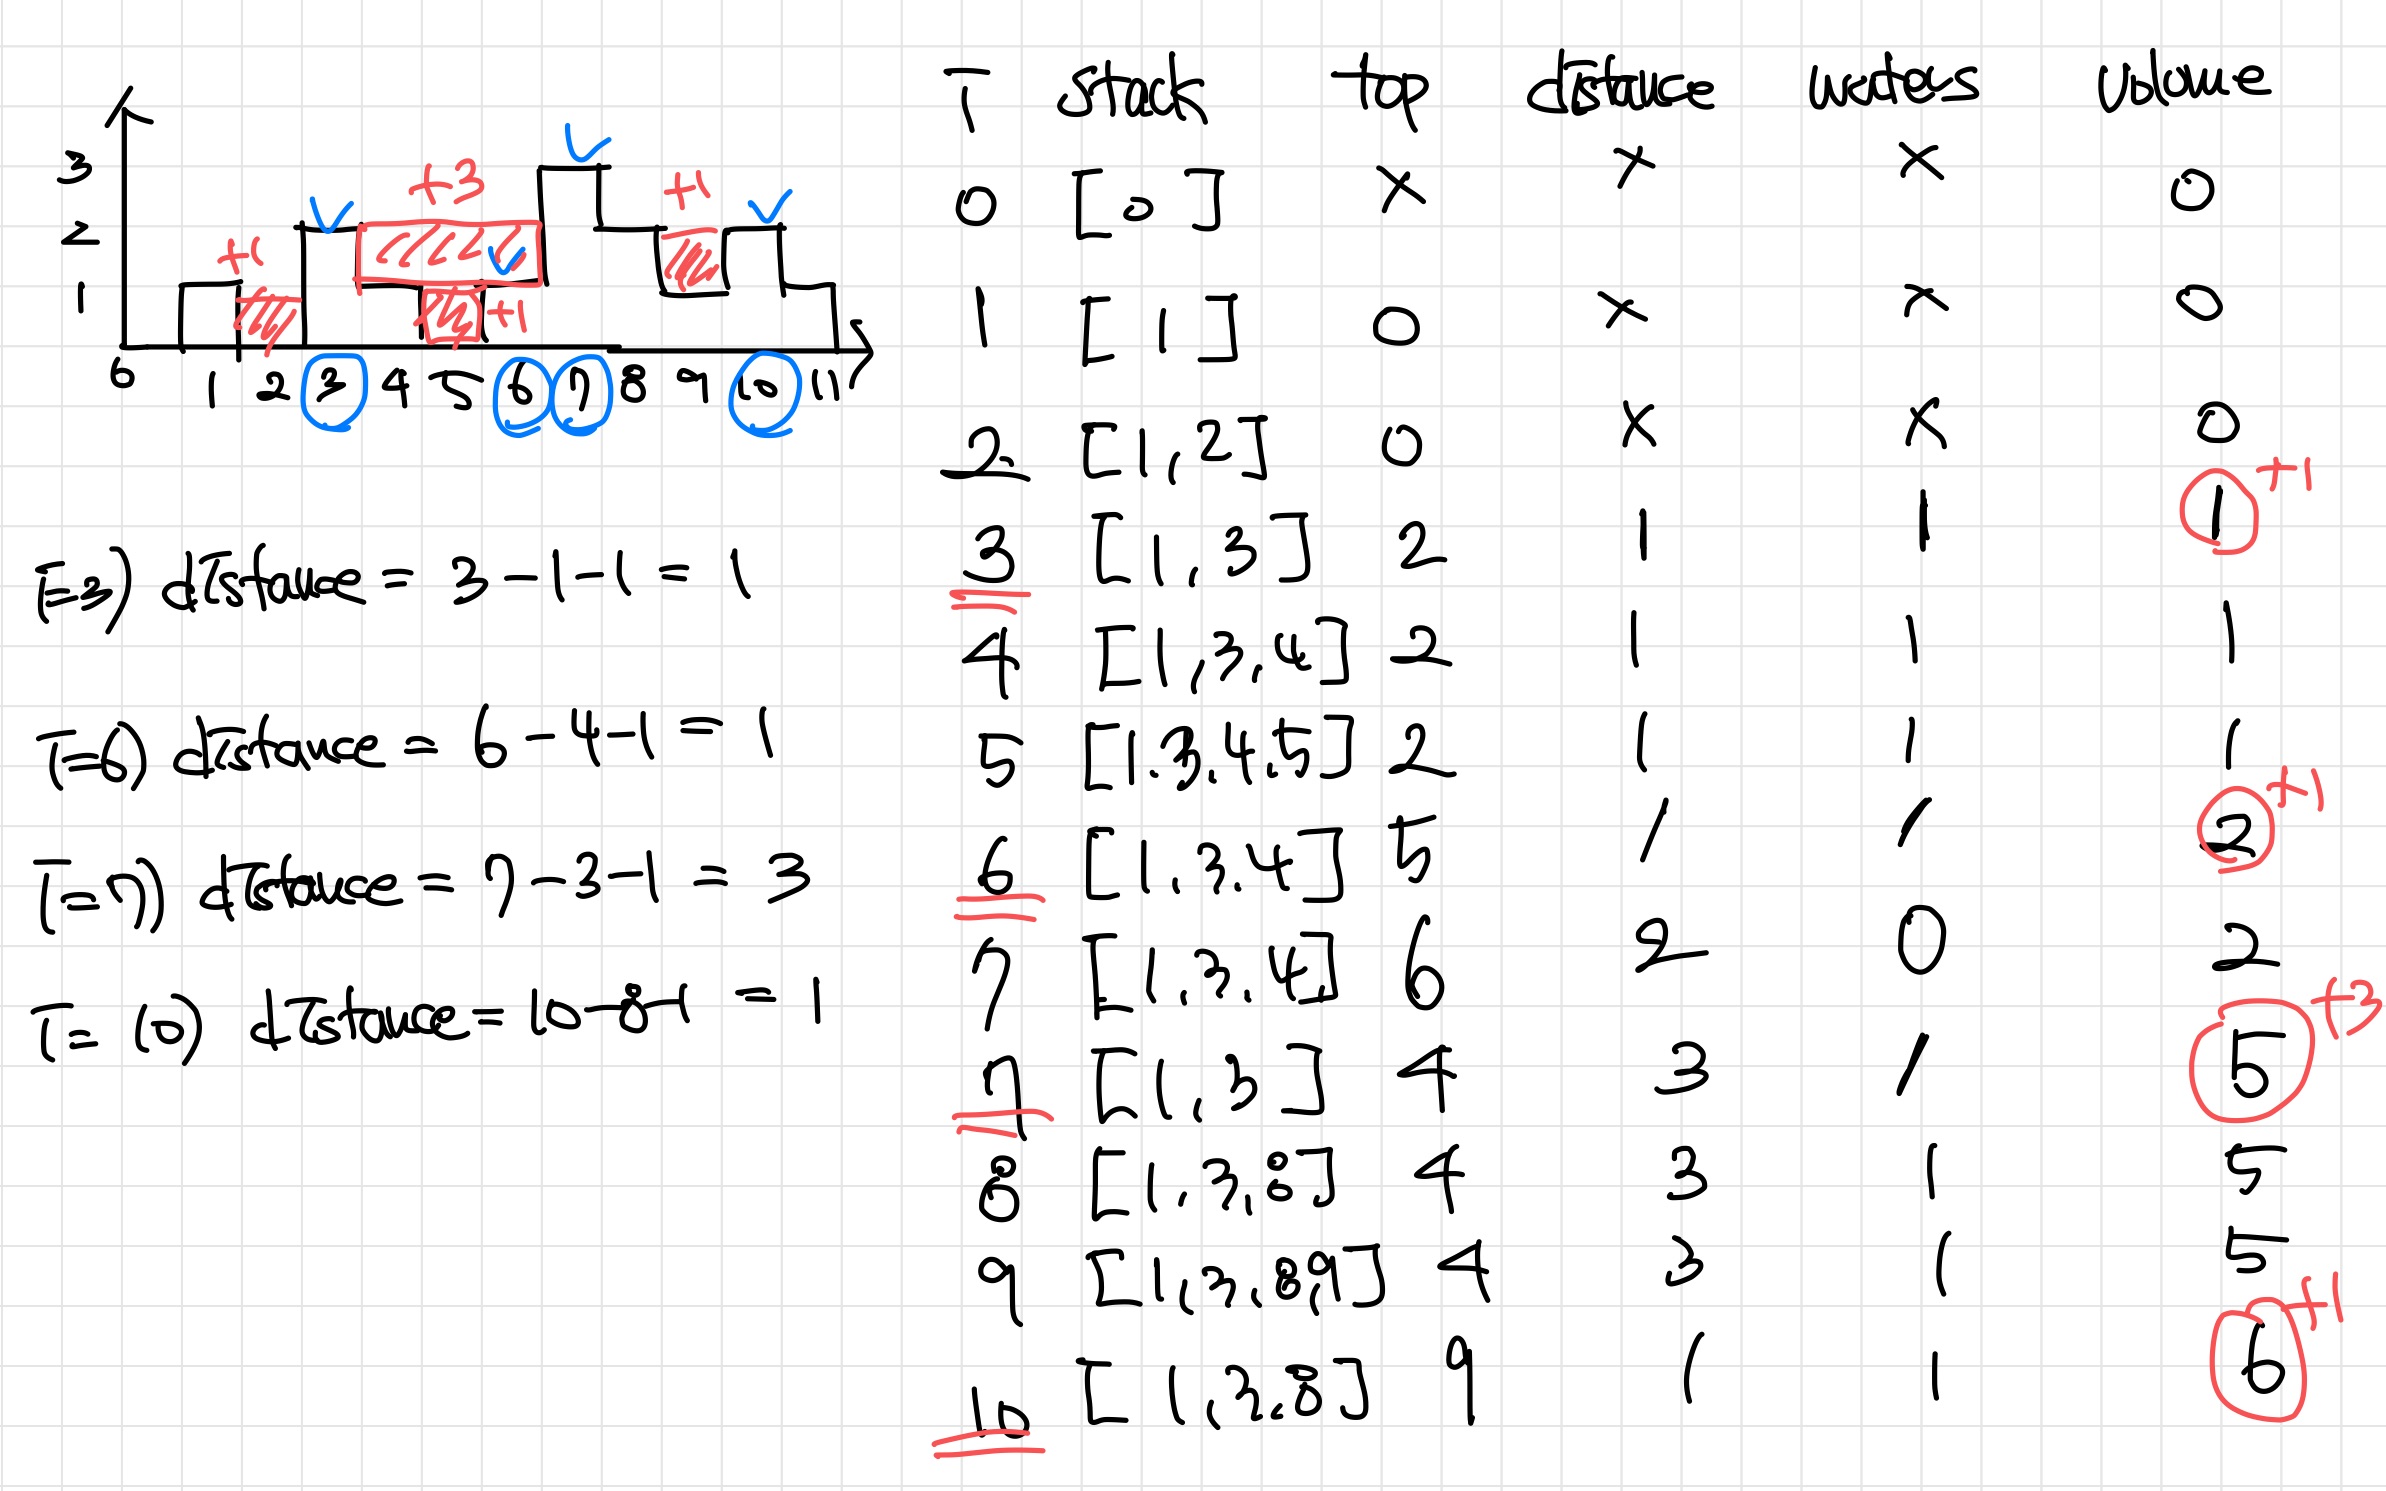 3
2
1
+1
+3
+1
+1
0 1 2 3 4 5 6 7 8 9 10 11
T=3) distance = 3-1-1 = 1
T=6) distance = 6-4-1 = 1
T=7) distance = 7-3-1 = 3
T=10) distance = 10-8-1 = 1
T stack top distance waters volume
0 [0] × × × 0
1 [1] 0 × × 0
2 [1,2] 0 × × 0
3 [1,3] 2 1 1 1 +1
4 [1,3,4] 2 1 1 1
5 [1.3.4.5] 2 1 1 1
6 [1.3.4] 5 1 1 2 +1
7 [1.3.4] 6 2 0 2
7 [1,3] 4 3 1 5 +3
8 [1.3,8] 4 3 1 5
9 [1,3,8,9] 4 3 1 5
10 [1,3,8] 9 1 1 6 +1